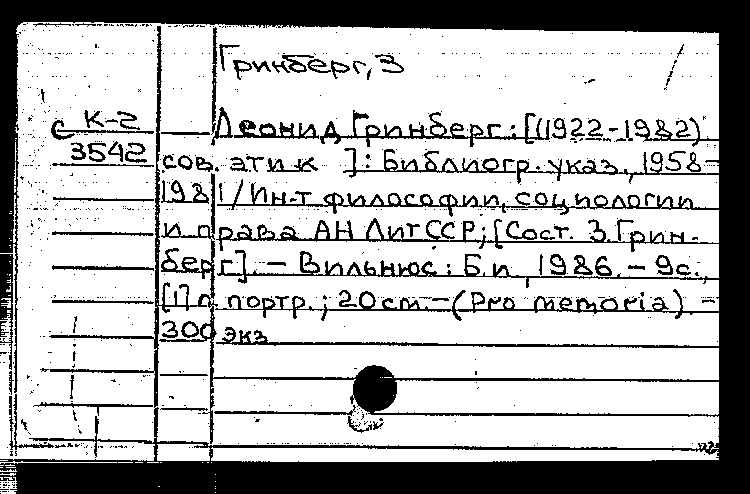 Гринберг, З
с К-2
3542
Леонид Гринберг: [(1922-1982)
сов. этик ]: Библиогр. указ., 1958-
1981 / Ин-т философии, социологии
и права АН ЛитССР; [Сост. З. Грин-
берг]. - Вильнюс: Б.и, 1986. - 9с.,
[1] л. портр.; 20см. - (Pro memoria). -
300 экз